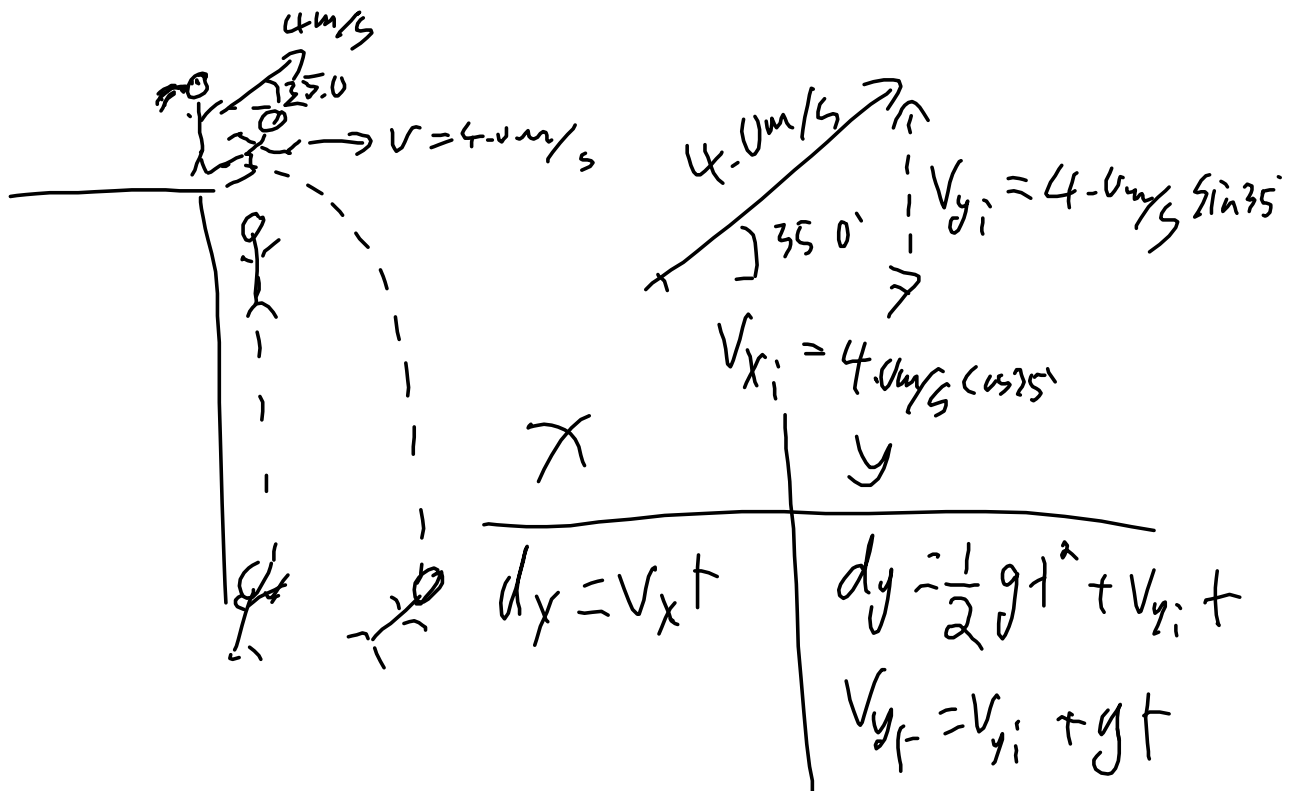 4m/s
35.0
V = 4.0m/s
4.0m/s
35 0°
Vyi = 4.0m/s sin35°
Vxi = 4.0m/s cos35°
x
y
dx = Vx t
dy = 1/2 gt² + Vyi t
Vyf = Vyi + gt